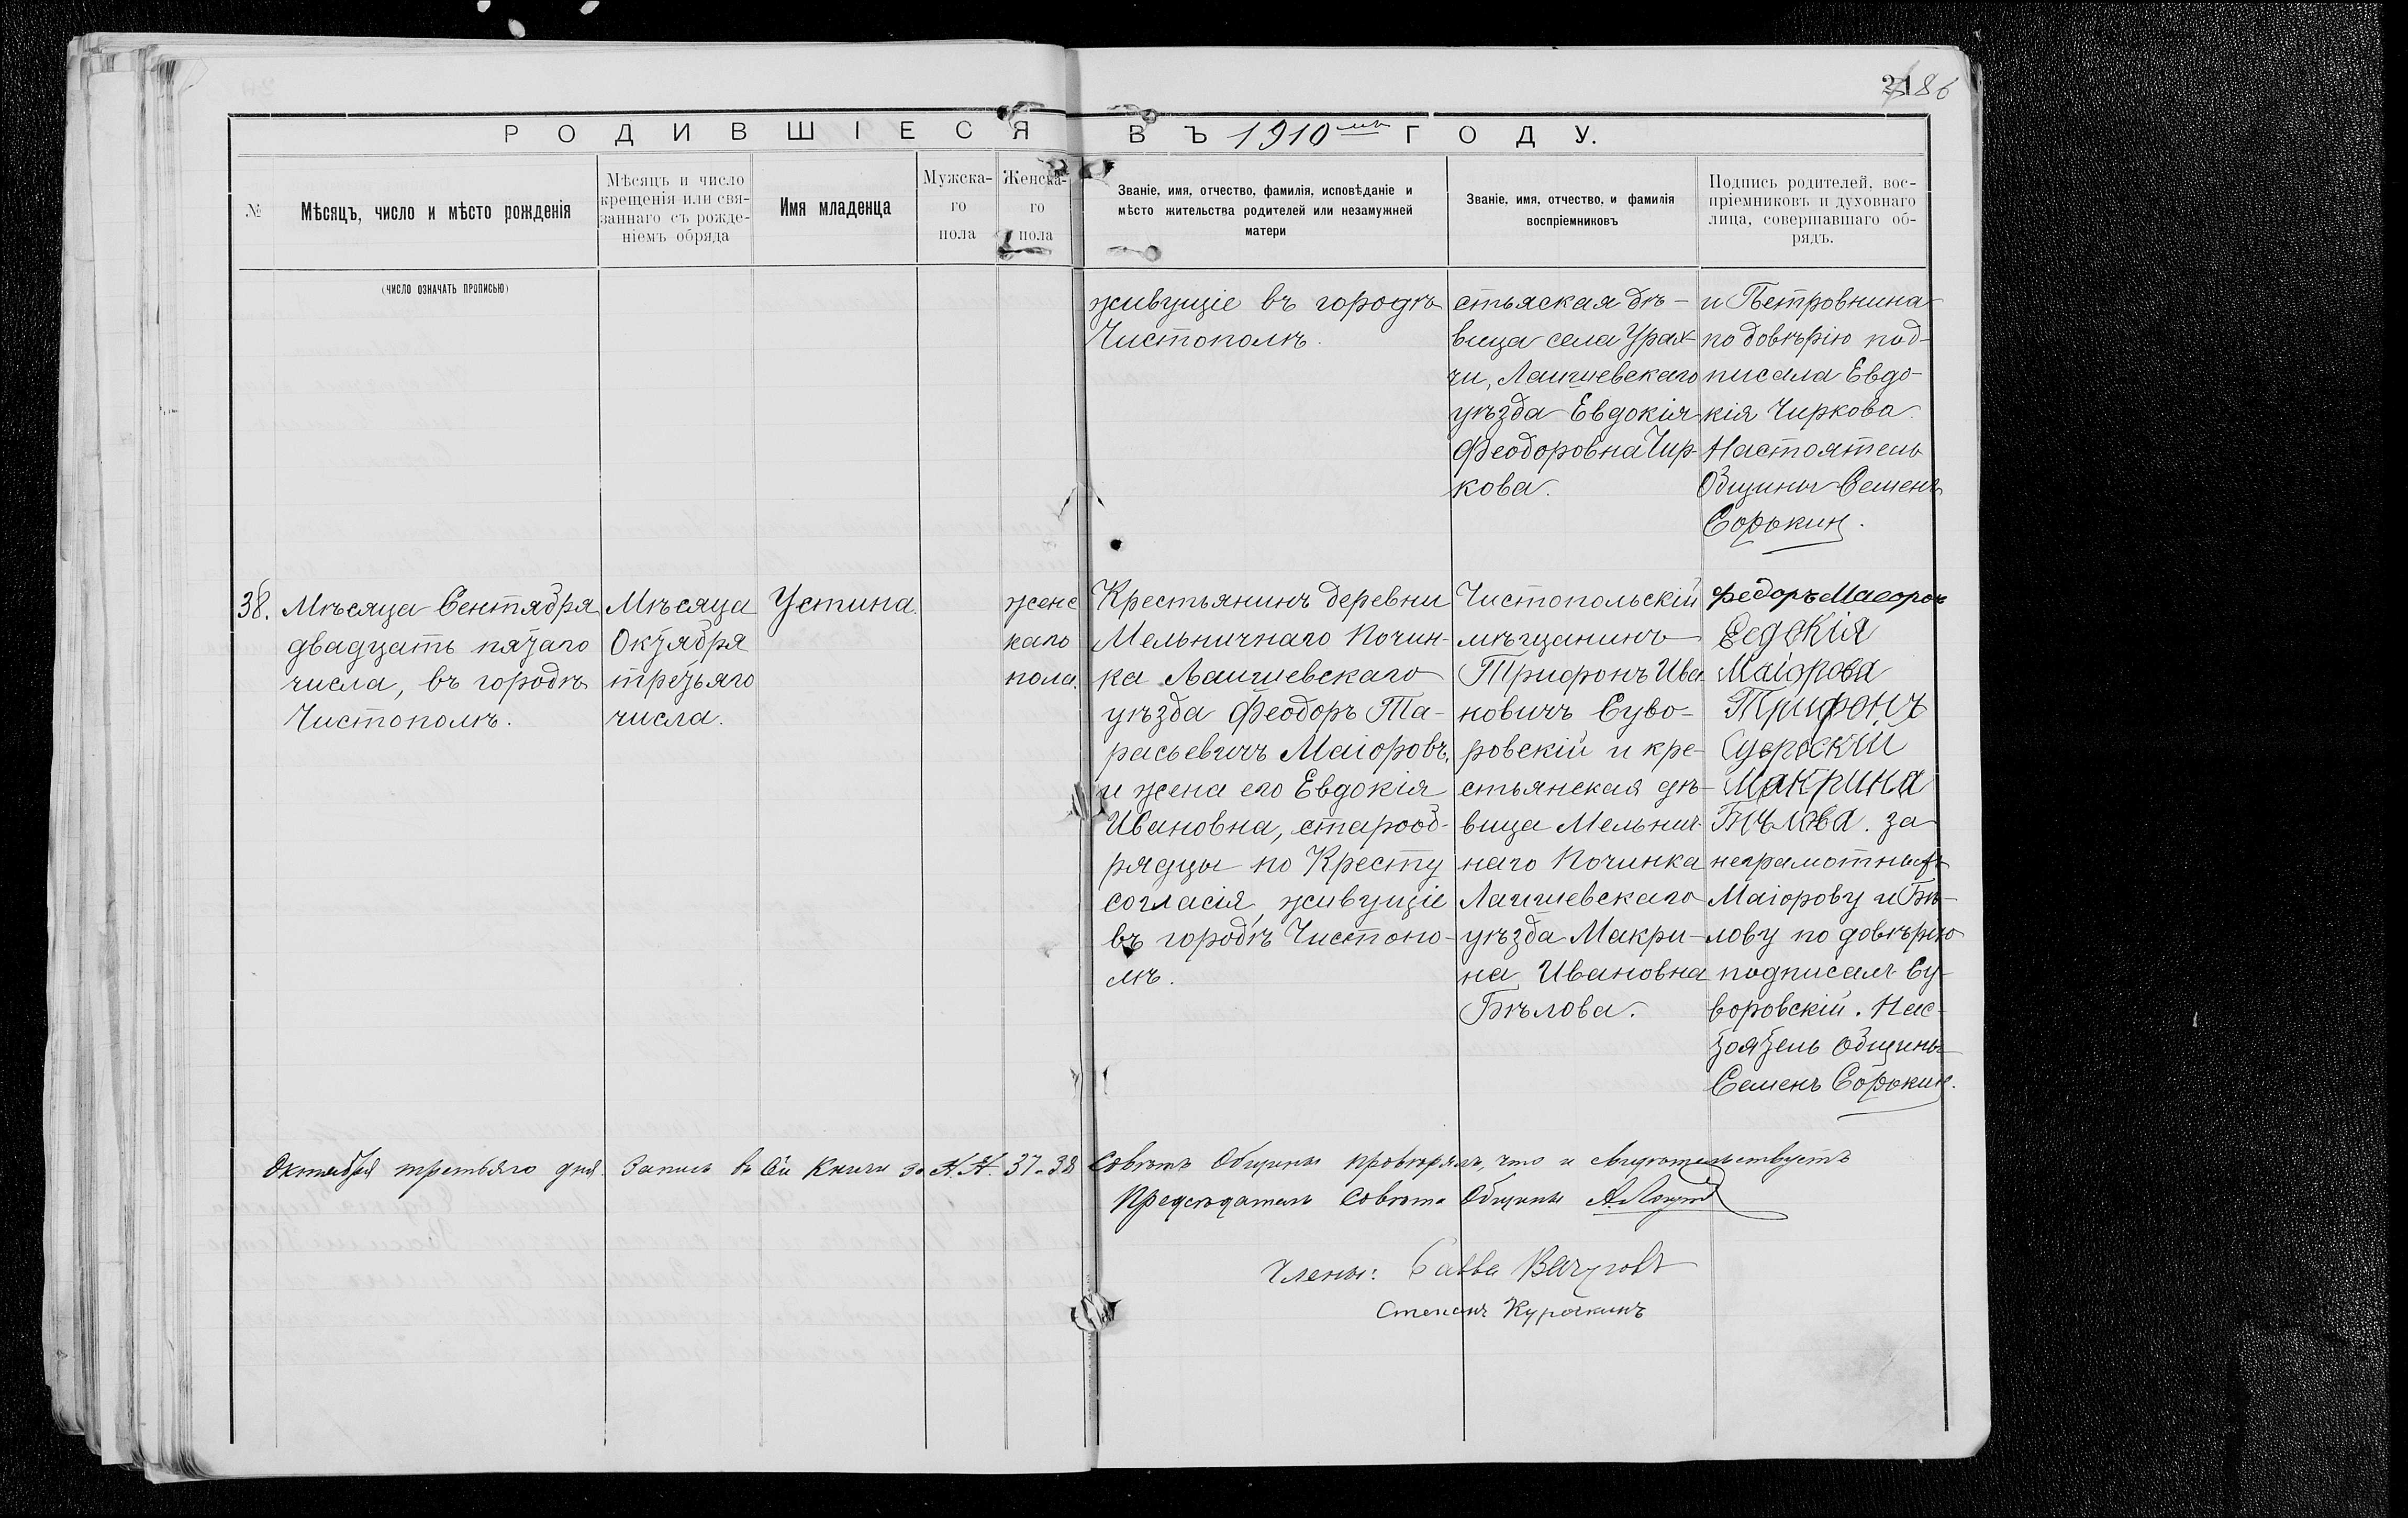 186
РОДИВШІЕСЯ ВЪ 1910мъ ГОДУ.
№
Мѣсяцъ, число и мѣсто рожденія
Мѣсяцъ и число
крещенія или свя-
заннаго съ рожде-
ніемъ обряда
Имя младенца
Мужска-
го
пола
Женска-
го
пола
Званіе, имя, отчество, фамилія, исповѣданіе и
мѣсто жительства родителей или незамужней
матери
Званіе, имя, отчество, и фамилія
воспріемниковъ
Подпись родителей, вос-
пріемниковъ и духовнаго
лица, совершавшаго об-
рядъ.
(число означать прописью)
живущіе въ городѣ
Чистополѣ.
стьяская дѣ-
вица села Урах-
чи, Лаишевскаго
уѣзда Евдокія
Феодоровна Чир-
кова.
и Петровнина
по довѣрію под-
писала Евдо-
кія Чиркова.
Настоятель
Общины Семенъ
Сорокин.
38.
Мѣсяца Сентября
двадцать пятаго
числа, въ городѣ
Чистополѣ.
Мѣсяца
Октября
третьяго
числа.
Устина.
женс
каго
пола.
Крестьянинъ деревни
Мельничнаго Почин-
ка Лаишевскаго
уѣзда Феодоръ Та-
расьевичъ Маіоровъ,
и жена его Евдокія
Ивановна, старооб-
рядцы по Кресту
согласія, живущіе
въ городѣ Чистопо-
лѣ.
Чистопольскій
мѣщанинъ
Трифонъ Ива
новичъ Суво-
ровскій и кре-
стьянская дѣ-
вица Мельнич-
наго Починка
Лаишевскаго
уѣзда Макри-
на Ивановна
Бѣлова.
Федоръ Маеоров
Еедокія
Маіорова
Трифонъ
Суороскій
Макрина
Бѣлова. за
неграмотныхъ
Маіорову и Бѣ-
лову по довѣрію
подписалъ Су-
воровскій. Нас-
тоятель Общины
Семенъ Сорокин.
Октября третьяго дня. Запись въ сей Книги за №№. 37-38 Совѣтъ Общины провѣрялъ, что и свидѣтельствуетъ
Предсѣдатель Совѣта Общины
Члены: Савва Вачуговъ
Степанъ Курочкинъ